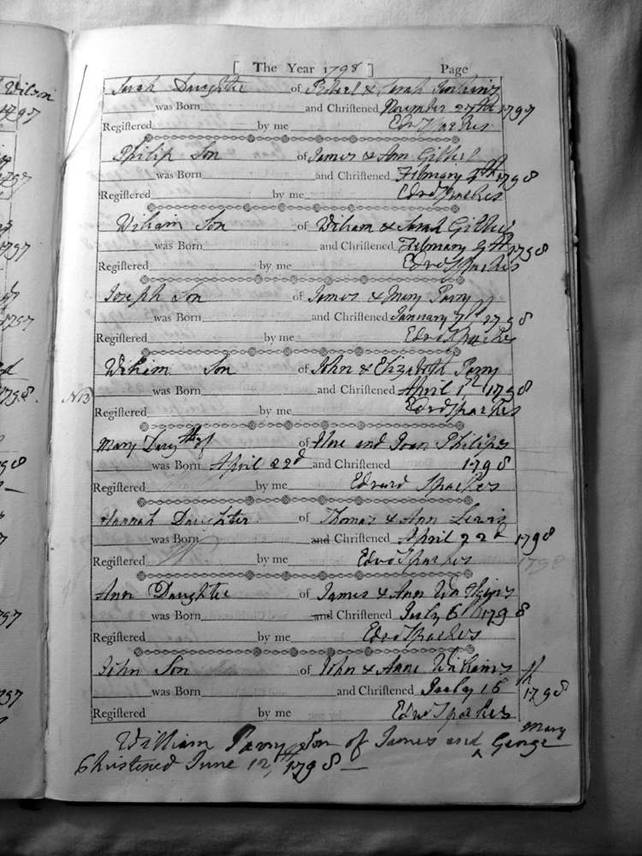 [ The Year 1798 ] Page
Sarah Daughter of & Sarah
was Born and Christened November 27th 1797
Registered by me Edwd Sparkes
Philip Son of James & Ann Gilbel
was Born and Christened 1798
Registered by me Edwd Sparkes
William Son of William & Sarah
was Born and Christened 1798
Registered by me Edwd Sparkes
Joseph Son of James & Mary Parry
was Born and Christened January 7th 1798
Registered by me Edwd Sparkes
William Son of John & Elizabeth Parry
was Born and Christened April 1st 1798
Registered by me Edwd Sparkes
Mary of and Joan Philipes
was Born April 22d and Christened 1798
Registered by me Edward Sparkes
Hannah Daughter of Thomas & Ann Lewis
was Born and Christened April 22d 1798
Registered by me Edwd Sparkes 1798
Ann Daughter of James & Ann Watkins
was Born and Christened July 6 1798
Registered by me Edwd Sparkes
John Son of John & Anne Watkins
was Born and Christened July 15th 1798
Registered by me Edwd Sparkes
William Parry Son of James and Mary George
Christened June 12, 1798